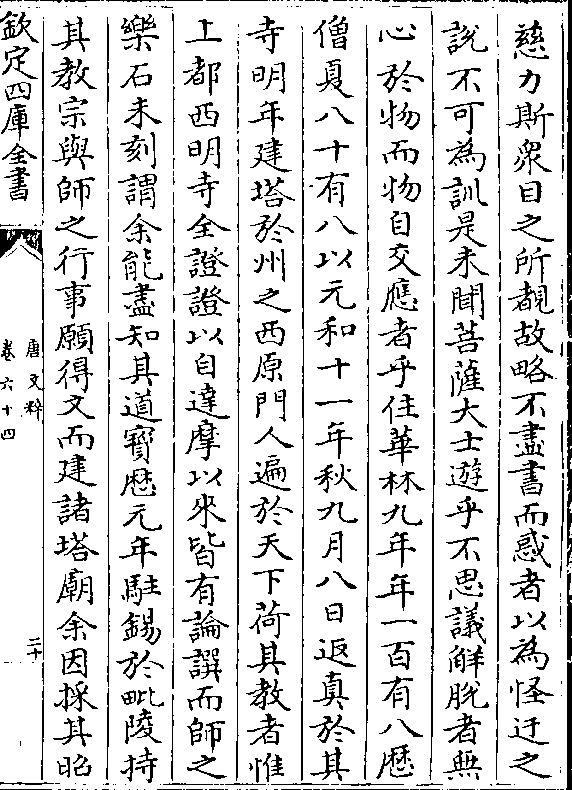 慈力斯衆目之所覩故略不盡書而惑者以為怪迂之
說不可為訓是未聞菩薩大士遊乎不思議解脱者無
心於物而物自交應者乎住華林九年年一百有八歴
僧夏八十有八以元和十一年秋九月八日返真於其
寺明年建塔於州之西原門人遍於天下荷其教者惟
上都西明寺全證證以自達摩以來皆有論譔而師之
樂石未刻謂余能盡知其道寶歴元年駐錫於毗陵持
其教宗與師之行事願得文而建諸塔廟余因採其昭
欽定四庫全書
唐文粹
卷六十四
二十